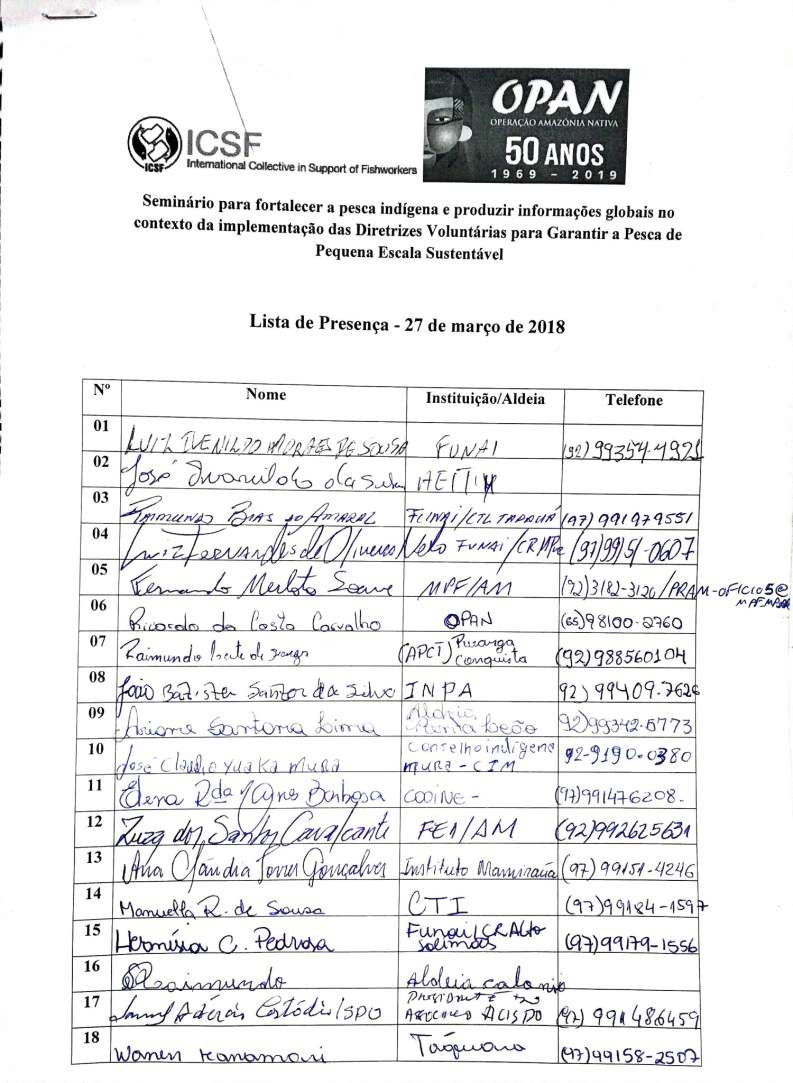 ICSF
International Collective in Support of Fishworkers
ICSF
OPAN
OPERAÇÃO AMAZÔNIA NATIVA
50 ANOS
1969 - 2019
Seminário para fortalecer a pesca indígena e produzir informações globais no
contexto da implementação das Diretrizes Voluntárias para Garantir a Pesca de
Pequena Escala Sustentável
Lista de Presença - 27 de março de 2018
Nº Nome Instituição/Aldeia Telefone
01 LUIZ IVENILDO MORAES DE SOUSA FUNAI (92) 99354-4921
02 José Ivanildo da Silva
03 RAIMUNDO BRAS DO AMARAL FUNAI/CTL TAPAUÁ (97) 991979551
04 Luiz Fernandes de Oliveira Neto FUNAI/ (97) 99151-0607
05 Fernando Merloto Soave MPF/AM (92) 3182-3120/PRAM-OFICIO5@
06 Ricardo da Costa Carvalho OPAN (65) 98100-2760
07 Raimundo (APCT) Puranga
Conquista (92) 988560104
08 João Batista Santos da Silva INPA 92) 99409-7626
09 Ariane Santana Lima Aldeia
92) 99342-6773
10 José Claudio Yuaka Mura Conselho indígena
MURA - CIM 92-9190-0380
11 Elena Rda Ygnes Barbosa COOINE - (97) 991476208-
12 Zuza dos Santos Cavalcante FEI/AM (92) 992625631
13 Ana Cláudia Torres Gonçalves Instituto Mamirauá (97) 99151-4246
14 Manuella R. de Sousa CTI (97) 99184-1597
15 Hermísia C. Pedrosa Funai/CR Alto
Solimões (97) 99179-1556
16 Raimundo Aldeia colonia
17 Custódio/SPO
ACISPO 991486459
18 Wanen Kanamari Taquara (97) 99158-2507